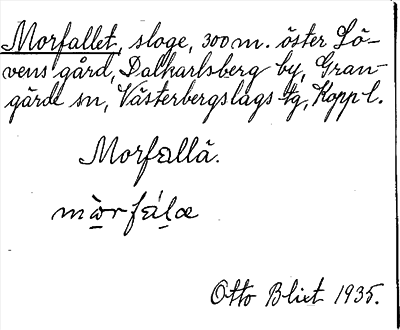 Morfallet, sloge, 300 m. öster Lö-
vens gård, Dalkarlsberg by, Gran-
gärde sn, Västerbergslags tg, Kopp l.
Morfallä.
mòrfál̥æ
Otto Blixt 1935.